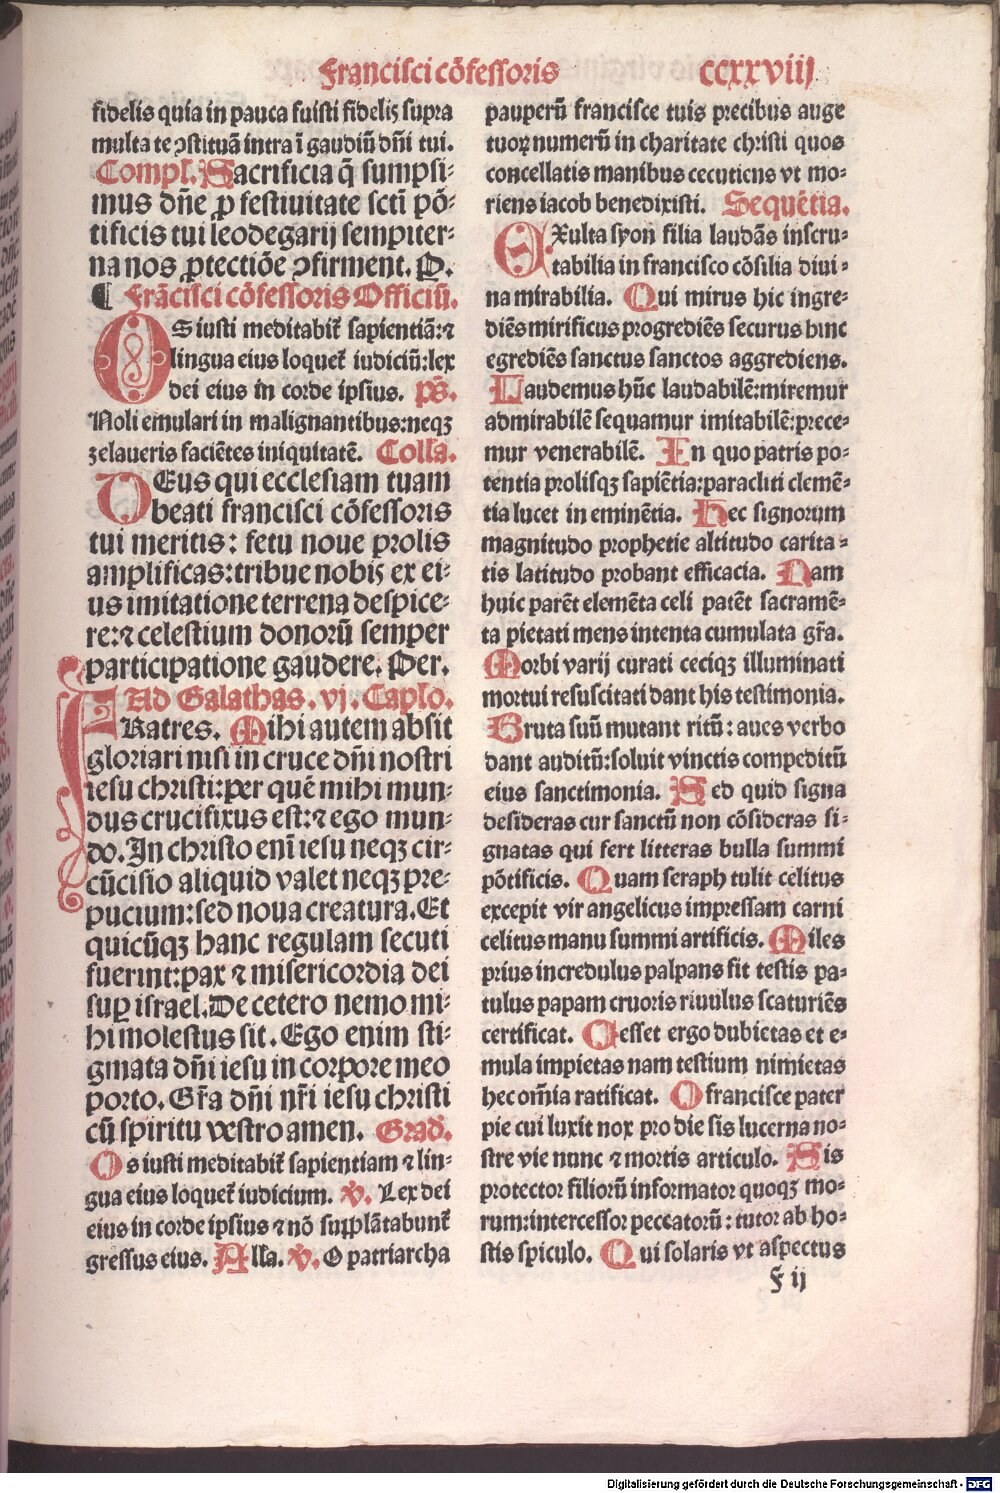 Francisci cõfessoris ccxxviij
fidelis quia in pauca fuisti fidelis supra
multa te ↄstituã intra ĩ gaudiũ dñi tui.
Compl. Sacrificia q̃ sumpsi-
mus dñe ꝓ festiuitate scti põ-
tificis tui leodegarij sempiter-
na nos ꝓtectiõe ↄfirment. P.
¶ Frãcisci cõfessoris Officiũ.
OS iusti meditabit̃ sapientiã: ⁊
lingua eius loquet̃ iudiciũ: lex
dei eius in corde ipsius. ps̃.
Noli emulari in malignantibus: neqꝫ
zelaueris faciẽtes iniquitatẽ. Colla.
DEus qui ecclesiam tuam
beati francisci cõfessoris
tui meritis: fetu noue prolis
amplificas: tribue nobis ex ei-
us imitatione terrena despice-
re: ⁊ celestium donorũ semper
participatione gaudere. Per.
Ad Galathas. vj. Caplo.
FRatres. Mihi autem absit
gloriari nisi in cruce dñi nostri
iesu christi: per quẽ mihi mun-
dus crucifixus est: ⁊ ego mun-
do. In christo enĩ iesu neqꝫ cir-
cũcisio aliquid valet neqꝫ pre-
pucium: sed noua creatura. Et
quicũqꝫ hanc regulam secuti
fuerint: pax ⁊ misericordia dei
suꝑ israel. De cetero nemo mi-
hi molestus sit. Ego enim sti-
gmata dñi iesu in corpore meo
porto. Gr̃a dñi nr̃i iesu christi
cũ spiritu vestro amen. Grad.
Os iusti meditabit̃ sapientiam ⁊ lin-
gua eius loquet̃ iudicium. ℣. Lex dei
eius in corde ipsius ⁊ nõ supplãtabunt̃
gressus eius. Alla. ℣. O patriarcha
pauperũ francisce tuis precibus auge
tuoꝝ numerũ in charitate christi quos
concellatis manibus cecutiens vt mo-
riens iacob benedixisti. Sequẽtia.
EXulta syon filia laudãs inscru-
tabilia in francisco cõsilia diui-
na mirabilia. Qui mirus hic ingre-
diẽs mirificus progrediẽs securus hinc
egrediẽs sanctus sanctos aggrediens.
Laudemus hũc laudabilẽ: miremur
admirabilẽ sequamur imitabilẽ: prece-
mur venerabilẽ. In quo patris po-
tentia prolisqꝫ sapiẽtia: paracliti clemẽ-
tia lucet in eminẽtia. Hec signorum
magnitudo prophetie altitudo carita-
tis latitudo probant efficacia. Nam
huic parẽt elemẽta celi patẽt sacramẽ-
ta pietati mens intenta cumulata gr̃a.
Morbi varij curati ceciqꝫ illuminati
mortui resuscitati dant his testimonia.
Bruta suũ mutant ritũ: aues verbo
dant auditũ: soluit vinctis compeditũ
eius sanctimonia. Sed quid signa
desideras cur sanctũ non cõsideras si-
gnatas qui fert litteras bulla summi
põtificis. Quam seraph tulit celitus
excepit vir angelicus impressam carni
celitus manu summi artificis. Miles
prius incredulus palpans fit testis pa-
tulus papam cruoris riuulus scaturiẽs
certificat. Cesset ergo dubietas et e-
mula impietas nam testium nimietas
hec om̃ia ratificat. O francisce pater
pie cui luxit nox pro die sis lucerna no-
stre vie nunc ⁊ mortis articulo. Sis
protector filiorũ informator quoqꝫ mo-
rum: intercessor peccatorũ: tutor ab ho-
stis spiculo. Qui solaris vt aspectus
F ij
Digitalisierung gefördert durch die Deutsche Forschungsgemeinschaft - DFG